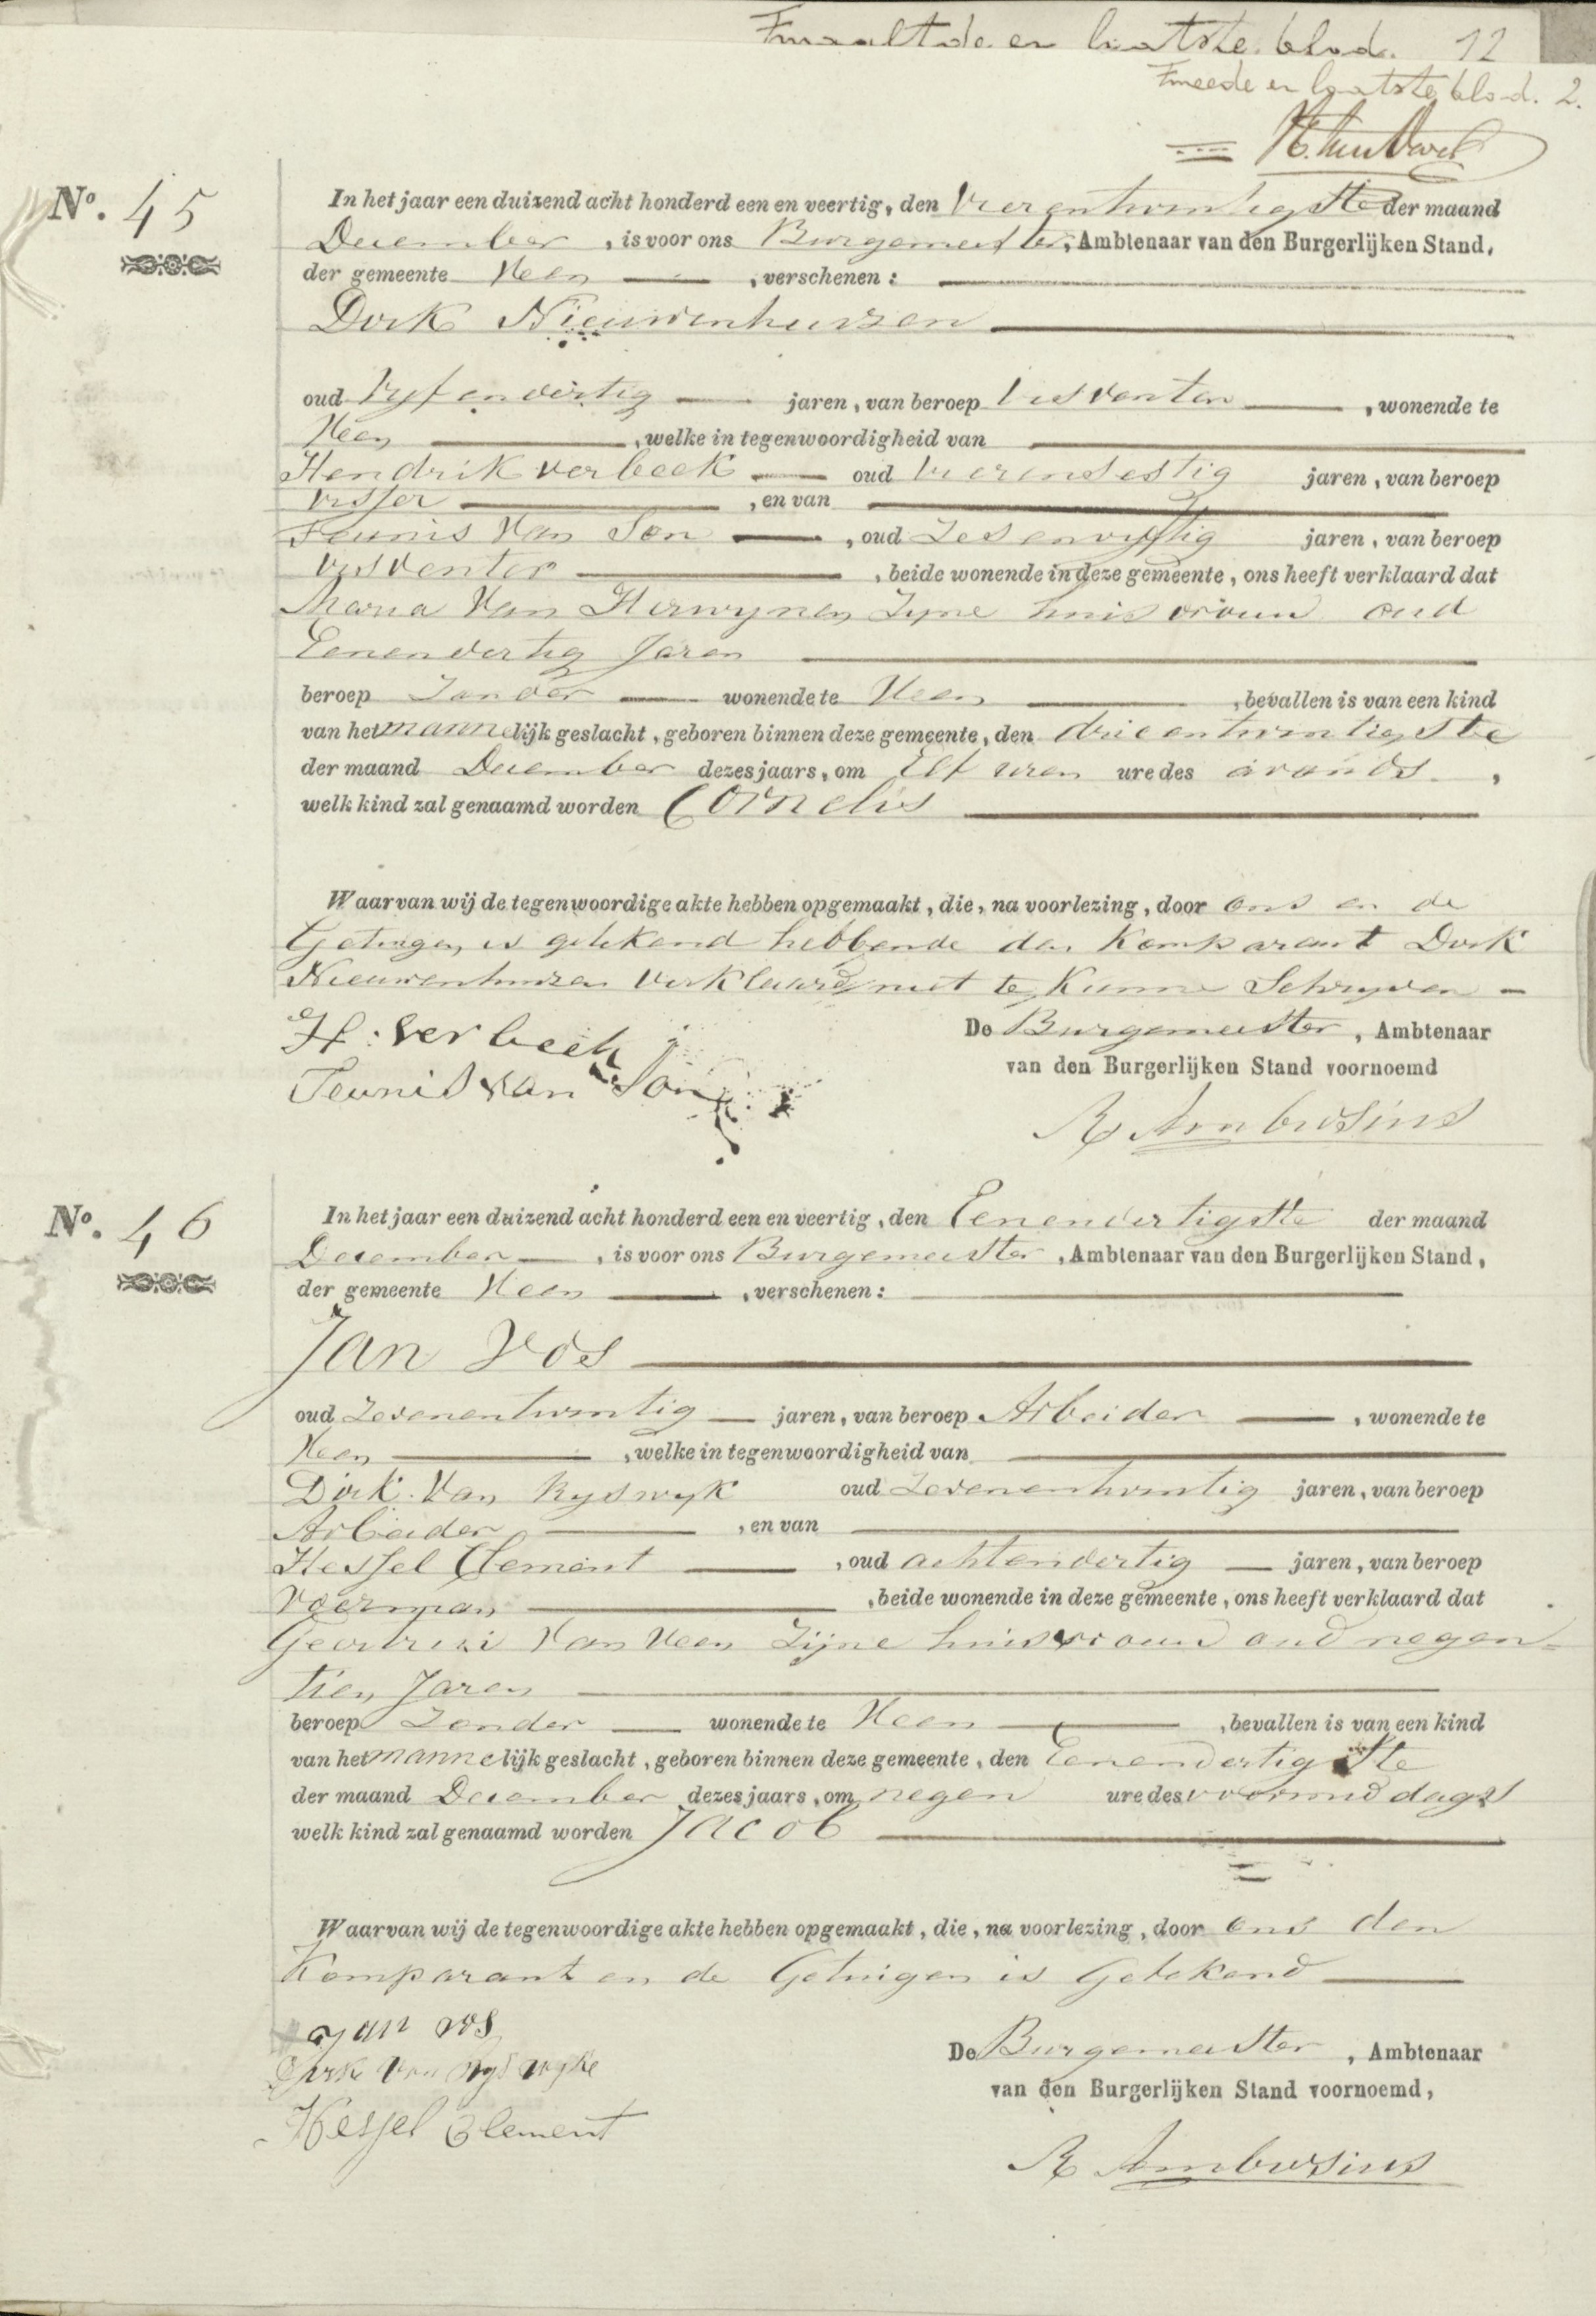 Twaalfde en laatste blad. 12
Tweede en laatste blad. 2.
No. 45
In het jaar een duizend acht honderd een en veertig, den Vierentwintigste der maand
December , is voor ons Burgemeester, Ambtenaar van den Burgerlijken Stand,
der gemeente Heen , verschenen:
Dirk Nieuwenhuizen
oud Vyfendertig jaren, van beroep Visventer , wonende te
Heen , welke in tegenwoordigheid van
Hendrik verbeek oud Vierensestig jaren, van beroep
Visser , en van
Teunis Van Son , oud Zesenvyftig jaren, van beroep
Visventer , beide wonende in deze gemeente, ons heeft verklaard dat
Maria Van Herwynen Zyne huisvrouw oud
Eenendertig Jaren
beroep Zonder wonende te Heen , bevallen is van een kind
van het mannelijk geslacht, geboren binnen deze gemeente, den drieentwintigste
der maand December dezes jaars, om Elf uren ure des avonds ,
welk kind zal genaamd worden Cornelis
Waarvan wij de tegenwoordige akte hebben opgemaakt, die, na voorlezing, door ons en de
Getuigen is getekend hebbende den Komparant Dirk
Nieuwenhuizen Verklaard niet te Kunne Schryven
H: Verbeek
De Burgemeester, Ambtenaar
Teunis van Son
van den Burgerlijken Stand voornoemd
R Ambrosius
No. 46
In het jaar een duizend acht honderd een en veertig, den Eenendertigste der maand
December , is voor ons Burgemeester , Ambtenaar van den Burgerlijken Stand,
der gemeente Heen , verschenen:
Jan Vos
oud Zevenentwintig jaren, van beroep Arbeider , wonende te
Heen , welke in tegenwoordigheid van
Dirk Van Ryswyk oud Zevenentwintig jaren, van beroep
Arbeider , en van
Hessel Clement , oud achtendertig jaren, van beroep
Voerman , beide wonende in deze gemeente, ons heeft verklaard dat
Van Veen Zijne huisvrouw oud negen=
tien Jaren
beroep Zonder wonende te Heen , bevallen is van een kind
van het mannelijk geslacht, geboren binnen deze gemeente, den Eenendertigste
der maand December dezes jaars, om negen ure des voormiddags
welk kind zal genaamd worden Jacob
Waarvan wij de tegenwoordige akte hebben opgemaakt, die, na voorlezing, door ons den
Komparant en de Getuigen is Getekend
Jan vos
De Burgemeester , Ambtenaar
Dirk Van Ryswyke
van den Burgerlijken Stand voornoemd,
Hessel Clement
R Ambrosius